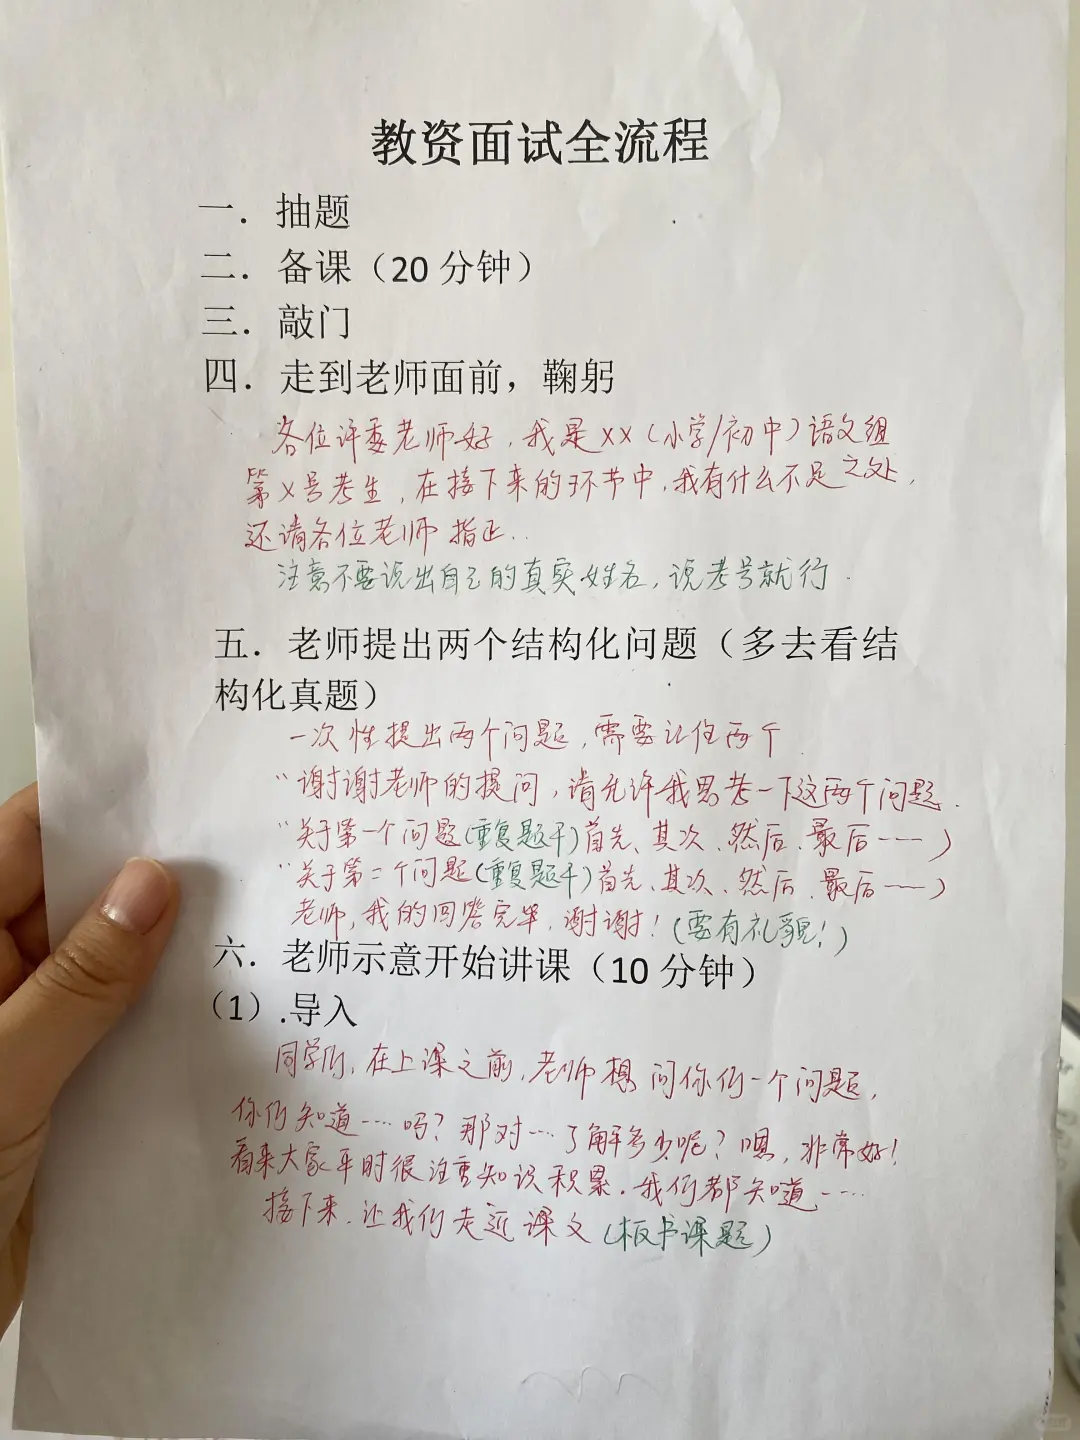 教资面试全流程
一．抽题
二．备课（20 分钟）
三．敲门
四．走到老师面前，鞠躬
各位评委老师好，我是xx（小学/初中）语文组
第X号考生，在接下来的环节中，我有什么不足之处，
还请各位老师指正..
注意不要说出自己的真实姓名，说考号就行.
五．老师提出两个结构化问题（多去看结
构化真题）
一次性提出两个问题，需要记住两个.
“谢谢老师的提问，请允许我思考一下这两个问题.
“关于第一个问题(重复题干)首先、其次、然后、最后……)
“关于第二个问题(重复题干)首先、其次、然后、最后……)
老师，我的回答完毕，谢谢！(要有礼貌！)
六．老师示意开始讲课（10 分钟）
（1）.导入
同学们，在上课之前，老师想问你们一个问题，
你们知道……吗？那对……了解多少呢？嗯，非常好！
看来大家平时很注重知识积累．我们都知道……
接下来，让我们走近课文(板书课题)